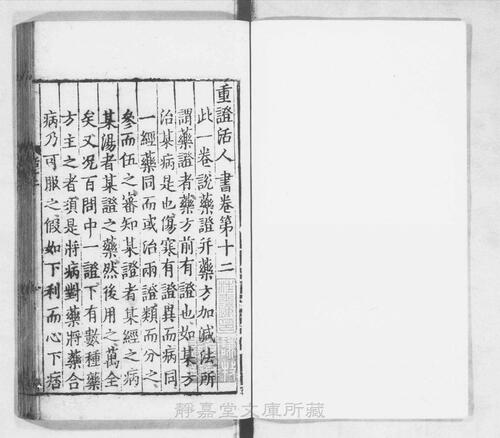 重證活人書卷第十二
此一卷說藥證并藥方加減法所
謂藥證者藥方前有證也如某方
治某病是也傷寒有證異而病同
一經藥同而或治兩證類而分之
參而伍之審知某證者某經之病
某湯者某證之藥然後用之萬全
矣又况百問中一證下有數種藥
方主之者須是將病對藥將藥合
病乃可服之假如下利而心下痞
靜嘉堂文庫所藏